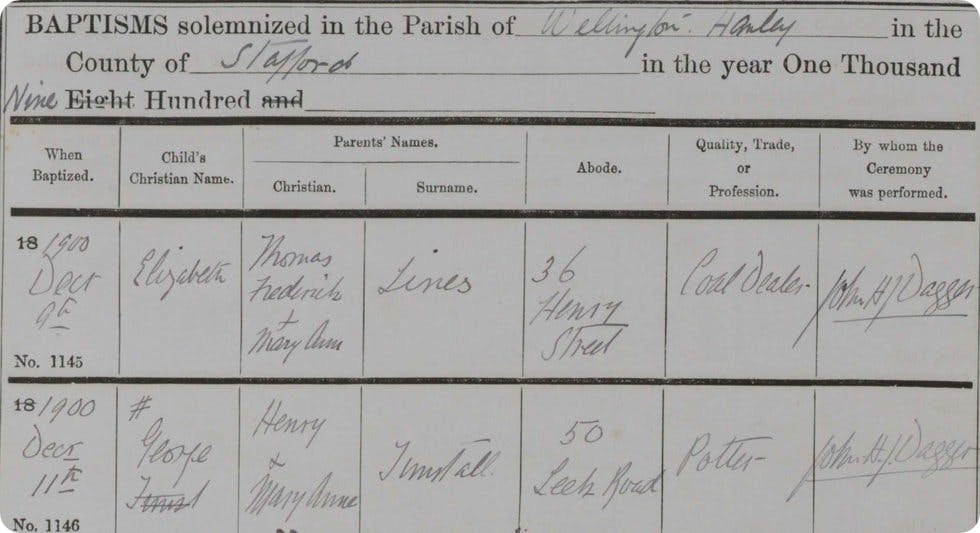 BAPTISMS solemnized in the Parish of Wellington Hanley in the
County of Stafford in the year One Thousand
Nine Eight Hundred and
When Baptized.
Child's Christian Name.
Parents' Names.
Christian.
Surname.
Abode.
Quality, Trade, or Profession.
By whom the Ceremony was performed.
18 1900
Decr
9th
No. 1145
Elizabeth
Thomas
Frederick
+
Mary Ann
Lines
36
Henry
Street
Coal Dealer
John H J Dagger
18 1900
Decr
11th
No. 1146
#
George
Henry
+
Mary Anne
Tunstall
50
Leek Road
Potter
John H. J. Dagger